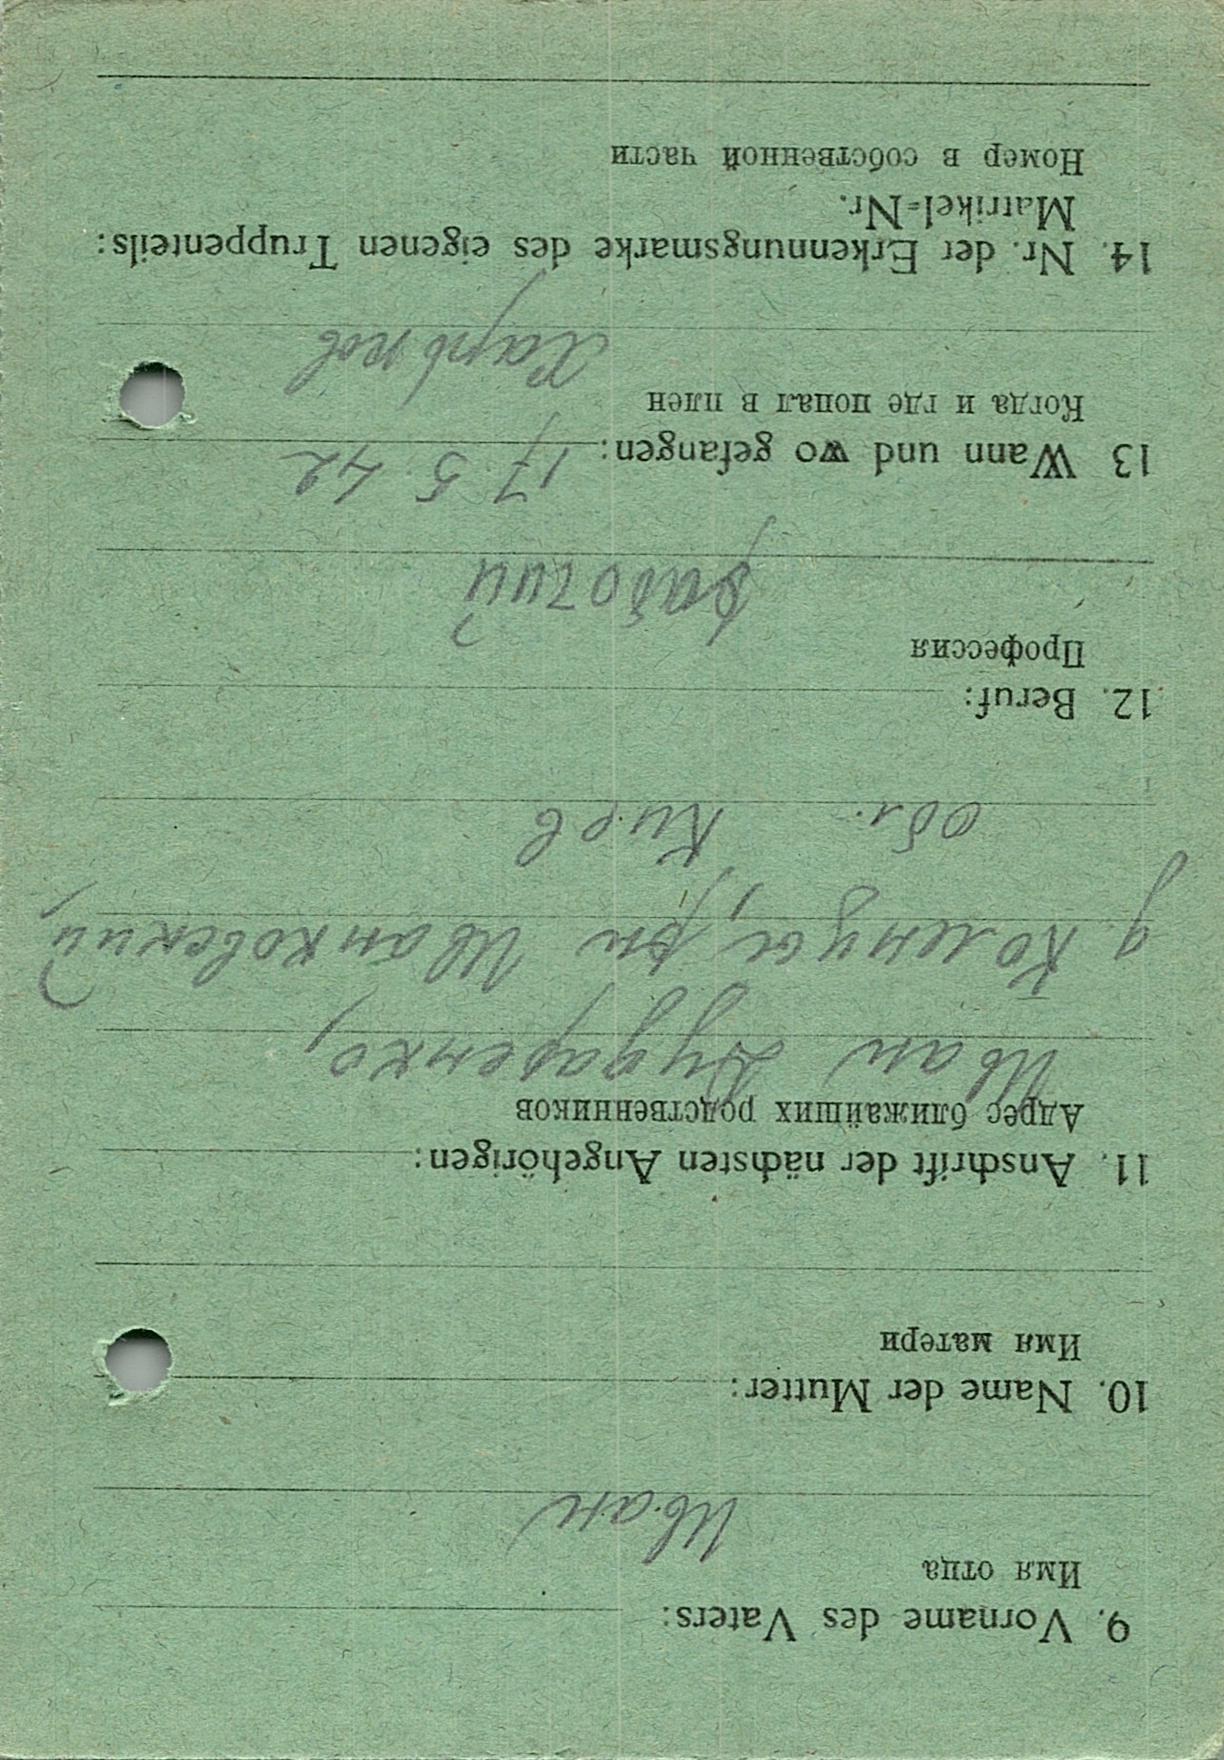 9. Vorname des Vaters:
Имя отца
Иван
10. Name der Mutter:
Имя матери
11. Anschrift der nächsten Angehörigen:
Адрес ближайших родственников
Иван Дударенко,
д. Коленцы, рн Иванковский,
обл. Киев
12. Beruf:
Профессия
рабочий
13 Wann und wo gefangen: 17 5 42
Когда и где попал в плен
Харьков
14. Nr. der Erkennungsmarke des eigenen Truppenteils:
Matrikel=Nr.
Номер в собственной части